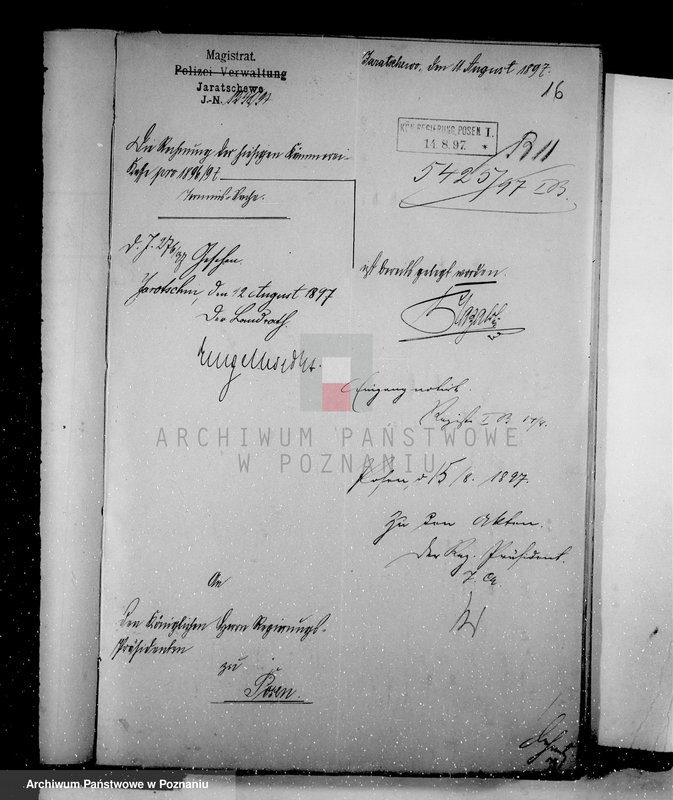 Magistrat.
Polizei-Verwaltung
Jaratschewo
J.-N.
Die Rechnung der hiesigen Kämmerei-
Kasse pro 1896/97.
Termins-Sache.
Gesehen.
Jarotschin, den 12 August 1897
Der Landrath
Engelbrecht.
An
den Königlichen Herrn Regierungs-
Präsidenten
zu
Posen.
Jaratschewo, den 11 August 1897.
16
KÖN. REGIERUNG, POSEN. I.
14.8.97 *
5425/97 I B.
ist bereits gelegt worden.
Eingang notirt.
Posen, d 15/8. 1897.
Zu den Akten.
Der Reg. Präsident.
ARCHIWUM PAŃSTWOWE
W POZNANIU
Archiwum Państwowe w Poznaniu